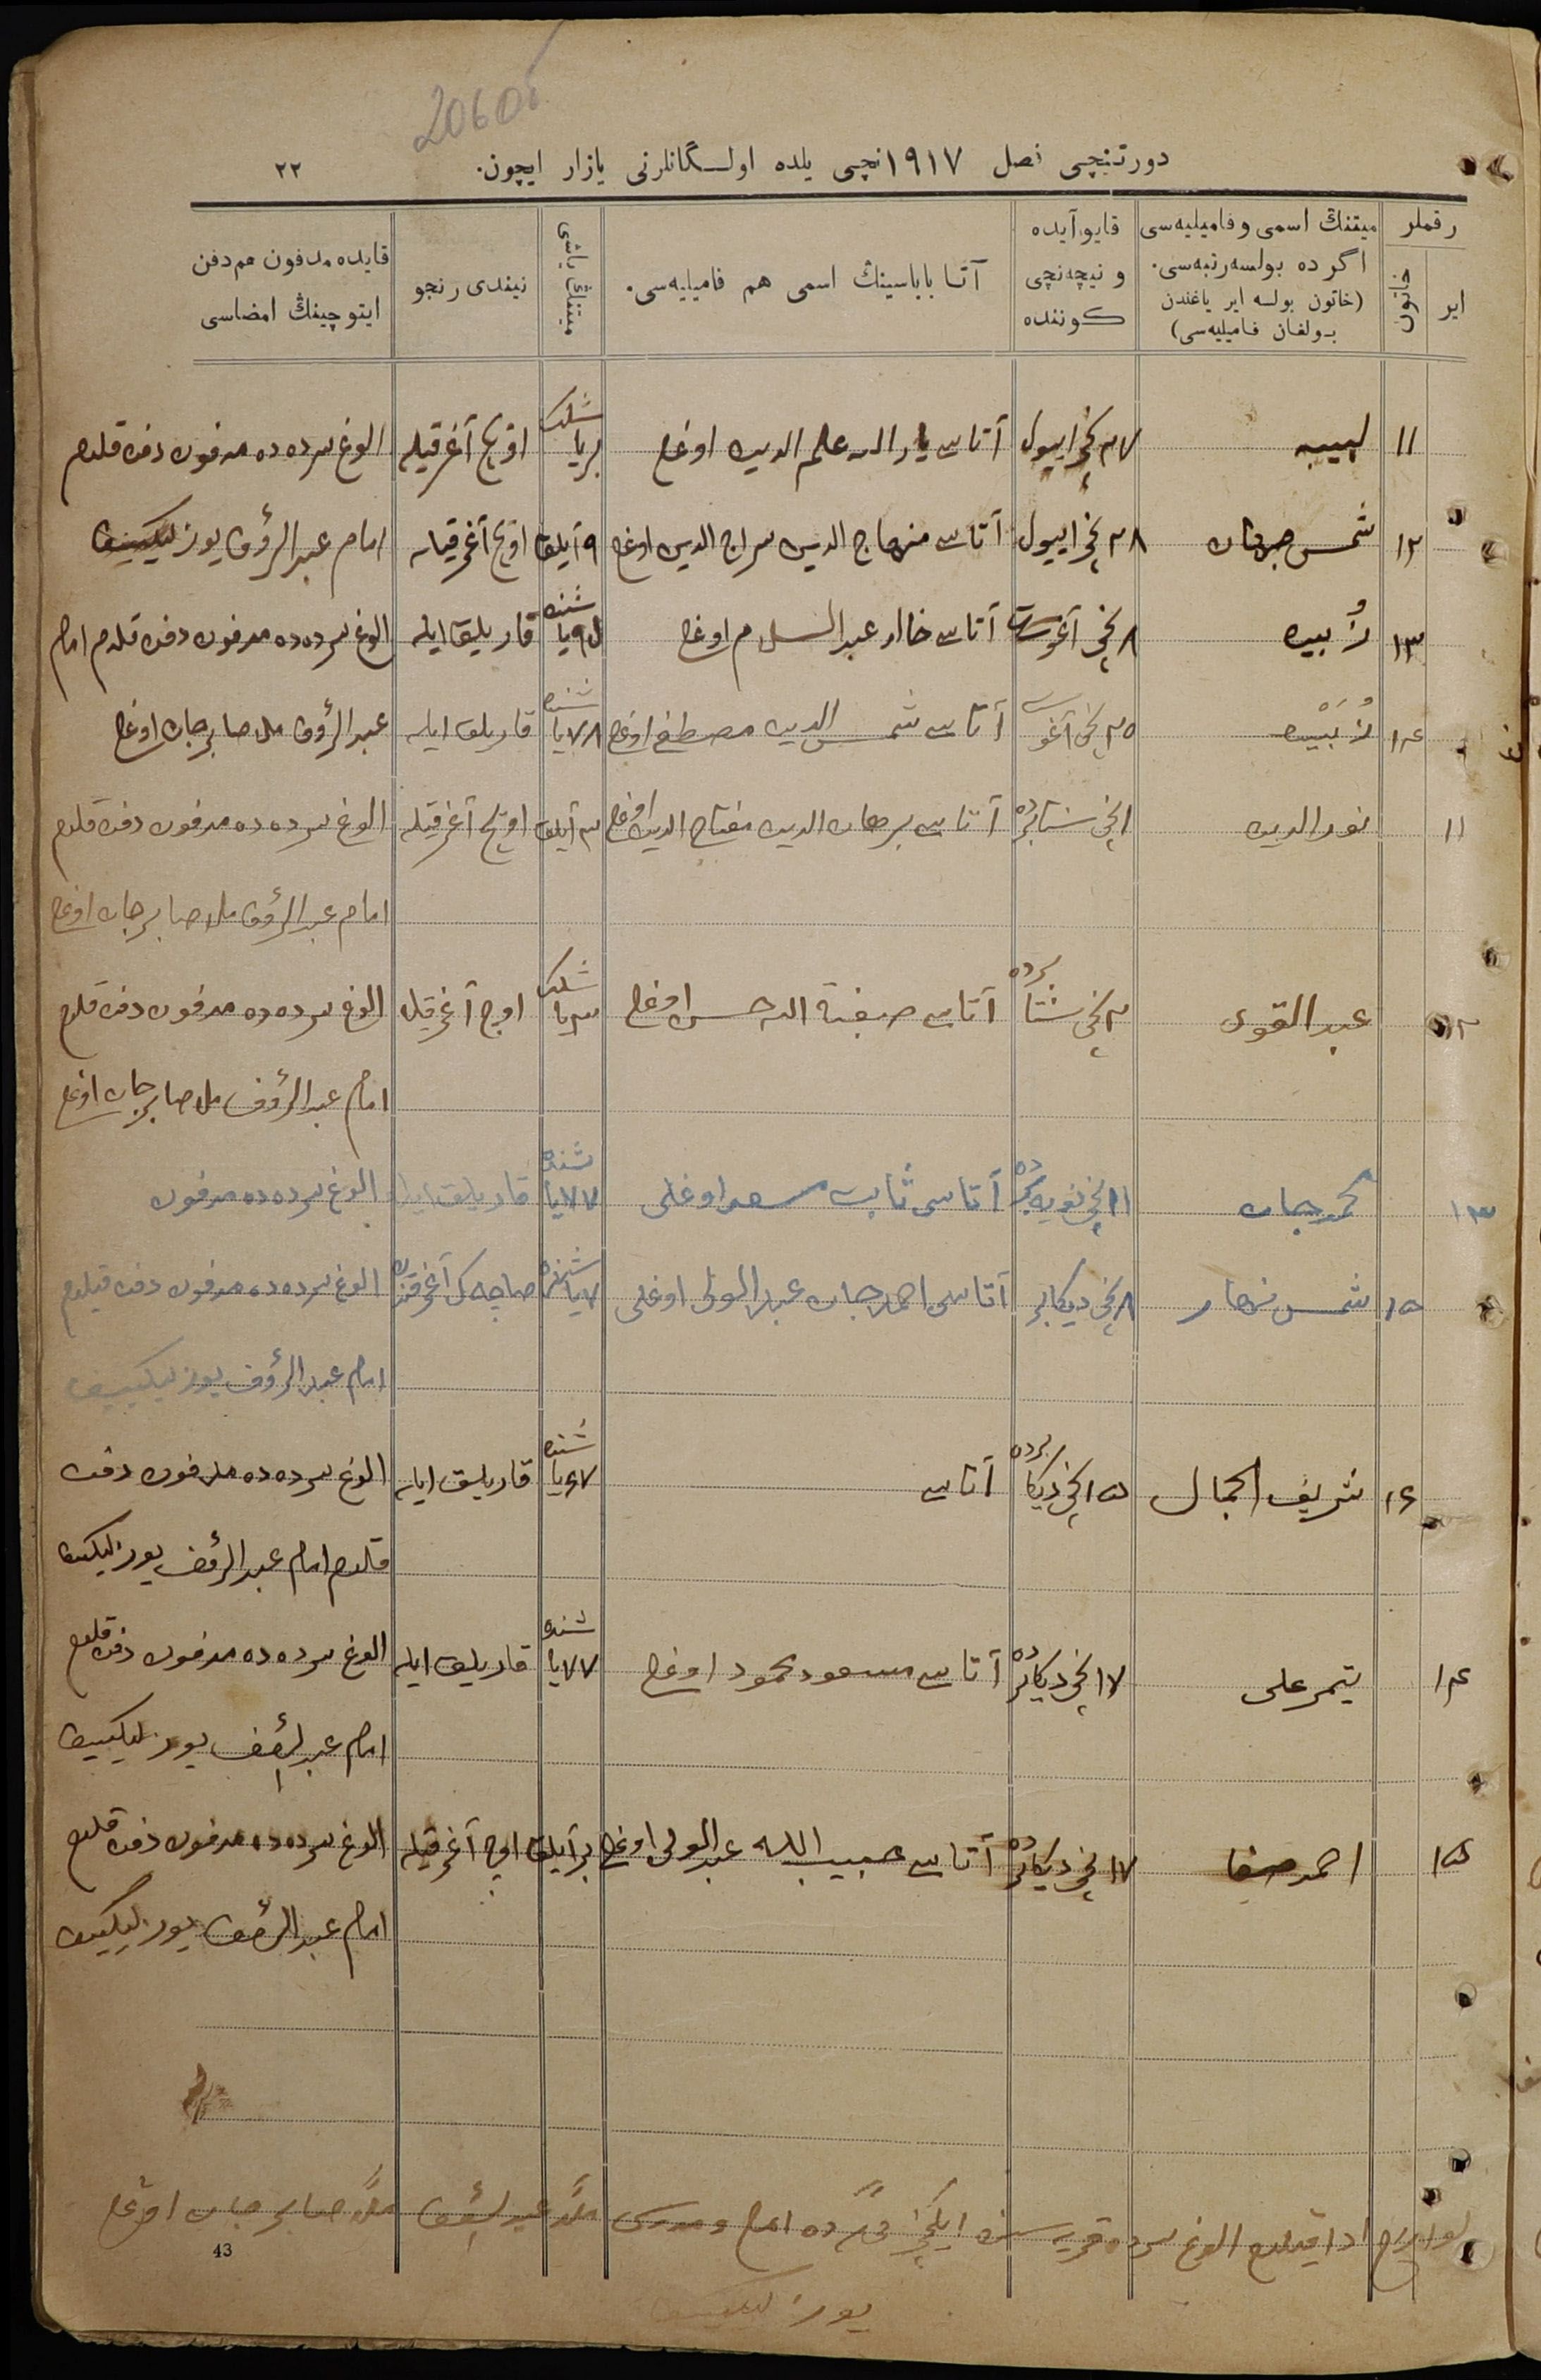 20606
دورتنچی فصل ١٩١٧نچی یلده اولـگانلرنی یازار ایچون. ٢٢
رقملر
ایر
خاتون
میتنڭ اسمی و فامیلیه‌سی
اگر ده بولسه رتبه‌سی.
(خاتون بولسه ایر یاغندن
بـولغان فـامیلیه‌سی)
قایو آیده
و نیچه‌نچی
كـوننده
آتـا بابا‌سینڭ اسمی هم فامیلیه‌سی.
میتنڭ یاشی
نیندی رنجو
قایده مدفون هم دفن
ایتوچینڭ امضاسی
١١ لبیبه ٢٧نچی ایول آتاسی یار الله علم الدین اوغلی بر یاشلک اوچ آغرقیله الوغ سرده ده مدفون دفن قلدم
١٢ شمس جهان ٢٨نچی ایول آتاسی منهاج الدین سراج الدین اوغلی ٩ آیلق اوچ آغرقیله امام عبد الرؤف یوزلیکییف
١٣ زبیده ٨نچی آغوست آتاسی عبد السلام اوغلی یاشنده قاریلق ایله الوغ سرده ده مدفون دفن قلدم امام
١٤ ٢٥نچی آغوست آتاسی شمس الدین مصطفی اوغلی ٧٨ یاشنده قارلق ایله عبد الرؤف ملا صابرجان اوغلی
١١ نور الدین ١نچی سنتابرده آتاسی برهان الدین مفتاح الدین اوغلی ٣ آیلق اوچ آغرقیله الوغ سرده ده مدفون دفن قلدم
امام عبد الرؤف ملا صابرجان اوغلی
١٢ عبد القوی ٢نچی سنتابرده آتاسی صبغة الله حسن اوغلی ٣ یاشلک اوچ آغرقیله الوغ سرده ده مدفون دفن قلدم
امام عبد الرؤف ملا صابرجان اوغلی
١٣ محمدجان ١١نچی نویابرده آتاسی ثابت اوغلی ٧٧ یاشنده قاریلق ایله الوغ سرده ده مدفون
١٥ شمس نهار ٨نچی دیکابر آتاسی احمدجان عبد الولی اوغلی ٧ یاشنده الوغ سرده ده مدفون دفن قیلدم
امام عبد الرؤف یوزلیکییف
١٦ شریف الجمال ١٥نچی دیکابرده آتاسی ٦٧ یاشنده قاریلق ایله الوغ سرده ده مدفون دفن
قلدم امام عبد الرؤف یوزلیکییف
١٤ یتمرعلی ١٧نچی دیکابرده آتاسی مسعود محمود اوغلی ٧٧ یاشنده قاریلق ایله الوغ سرده ده مدفون دفن قلدم
امام عبد الرؤف یوزلیکییف
١٥ احمد صفا ١٧نچی دیکابرده آتاسی حبیب الله عبد الولی اوغلی بر آیلق اوچ آغرقیله الوغ سرده ده مدفون دفن قلدم
امام عبد الرؤف یوزلیکییف
ادا قیلدم الوغ سرده قریه سنڭ ایکنچی امام و مدرس ملا عبد الرؤف ملا صابرجان اوغلی
یوزلیکییف
43